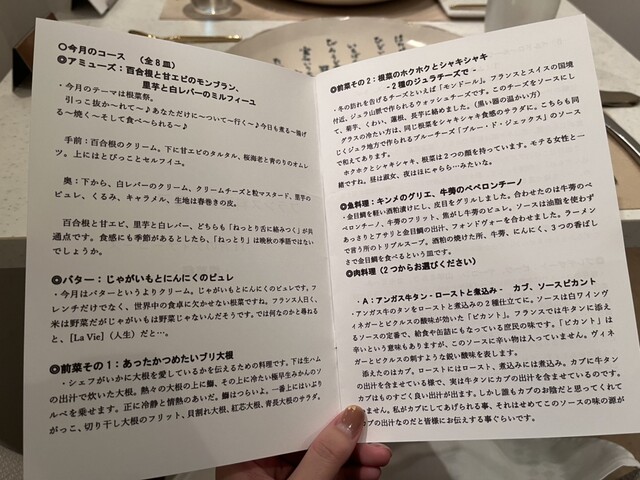 〇今月のコース (全8皿)
◎アミューズ：百合根と甘エビのモンブラン、
里芋と白レバーのミルフィーユ
・今月のテーマは根菜祭。
引っこ抜か～れて～♪あなただけに～ついて～行く～♪今日も煮る～揚げ
る～焼く～そして食べ～られる～♪
手前：百合根のクリーム。下に甘エビのタルタル、桜海老と青のりのオムレ
ツ。上にはとびっことセルフイユ。
奥：下から、白レバーのクリーム、クリームチーズと粒マスタード、里芋の
ピュレ、くるみ、キャラメル、生地は春巻きの皮。
百合根と甘エビ、里芋と白レバー、どちらも「ねっとり舌に絡みつく」が共
通点です。食感にも季節があるとしたら、「ねっとり」は晩秋の季語ではない
でしょうか。
◎バター：じゃがいもとにんにくのピュレ
・今月はバターというよりクリーム。じゃがいもとにんにくのピュレです。フ
レンチだけでなく、世界中の食卓に欠かせない根菜ですね。フランス人曰く、
米は野菜だがじゃがいもは野菜じゃないんだそうです。では何なのかと尋ねる
と、[La Vie]（人生）だと…。
◎前菜その1：あったかつめたいブリ大根
・シェフがいかに大根を愛しているかを伝えるための料理です。下は生ハム
の出汁で炊いた大根。熱々の大根の上に鰤、その上に冷たい極早生みかんのソ
ルベを乗せます。正に冷静と情熱のあいだ。鰤はつらいよ。一番上にはいぶり
がっこ、切り干し大根のフリット、貝割れ大根、紅芯大根、青長大根のサラダ。
◎前菜その2：根菜のホクホクとシャキシャキ
- 2種のジュラチーズで -
・冬の訪れを告げるチーズといえば「モンドール」。フランスとスイスの国境
付近、ジュラ山脈で作られるウォッシュチーズです。このチーズをソースにし
て、菊芋、くわい、蓮根、長芋に絡めました。（黒い器の温かい方）
グラスの冷たい方は、同じ根菜をシャキシャキ食感のサラダに。こちらも同
じくジュラ地方で作られるブルーチーズ「ブルー・ド・ジェックス」のソース
で和えてあります。
ホクホクとシャキシャキ、根菜は2つの顔を持っています。モテる女性と一
緒ですね。昼は淑女、夜はほにゃらら…みたいな。
◎魚料理：キンメのグリエ、牛蒡のペペロンチーノ
・金目鯛を軽い酒粕漬けにし、皮目をグリルしました。合わせたのは牛蒡のペ
ペロンチーノ、牛蒡のフリット、焦がし牛蒡のピュレ。ソースは油脂を使わず
あっさりとアサリと金目鯛の出汁、フォンドヴォーを合わせました。ラーメン
で言う所のトリプルスープ。酒粕の焼けた所、牛蒡、にんにく、3つの香ばし
さで金目鯛を食べるという皿です。
◎肉料理（2つからお選びください）
・A：アンガス牛タン・ローストと煮込み- カブ、ソースピカント
・アンガス牛のタンをローストと煮込みの2種仕立てに。ソースは白ワインヴ
ィネガーとピクルスの酸味が効いた「ピカント」。フランスでは牛タンに添え
るソースの定番で、給食や缶詰にもなっている庶民の味です。「ピカント」は
辛いという意味もありますが、このソースに辛い物は入っていません。ヴィネ
ガーとピクルスの刺すような鋭い酸味を表します。
添えたのはカブ。ローストにはロースト、煮込みには煮込み、カブに牛タン
の出汁を含ませている様で、実は牛タンにカブの出汁を含ませているのです。
カブはものすごく良い出汁が出ます。しかし誰もカブのお陰だと思ってくれて
ません。私がカブにしてあげられる事、それはせめてこのソースの味の源が
カブの出汁なのだと皆様にお伝えする事ぐらいです。